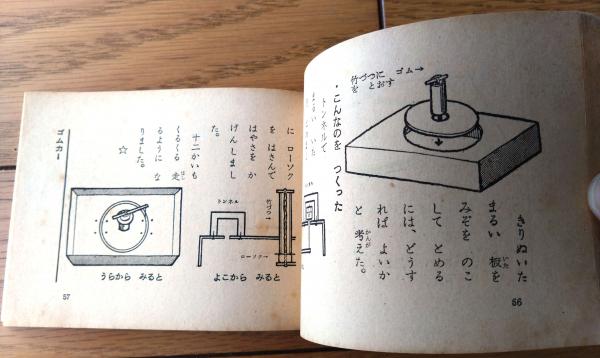 竹づつに ゴム→
を とおす
きりぬいた
まるい 板を
いた
みぞを のこ
して とめる
には、どうす
れば よいか
と 考えた。
かんが
56
・こんなのを つくった
トンネルで
に ローソク
を はさんで
はやさを か
げんしまし
た。
十二かいも
くるくる 走
はし
るように な
りました。
☆
トンネル
竹づつ→
ローソク→
よこから みると
うらから みると
ゴムカー
57